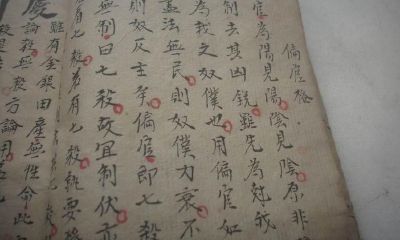 偏官格
官為陽見陽陰見陰原非
制去其凶銳雖先為尅我
為我之奴僕也用偏官如
憲法無民則奴僕力衰不
則奴反主矣偏官即七殺
無制曰七殺故宜制伏亦
自七殺若有七殺就要
雖有金銀田產無性命此
論殺無殺方論用